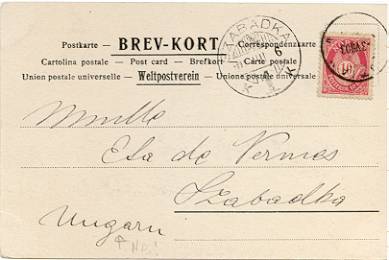 Postkarte – BREV-KORT – Correspondenzkarte
Cartolina postale – Post card – Brefkort – Carte postale
Union postale universelle – Weltpostverein – Unione postale universale
SZABADKA
10
Mlle
Eta de Vermes
Szabadka
Ungarn